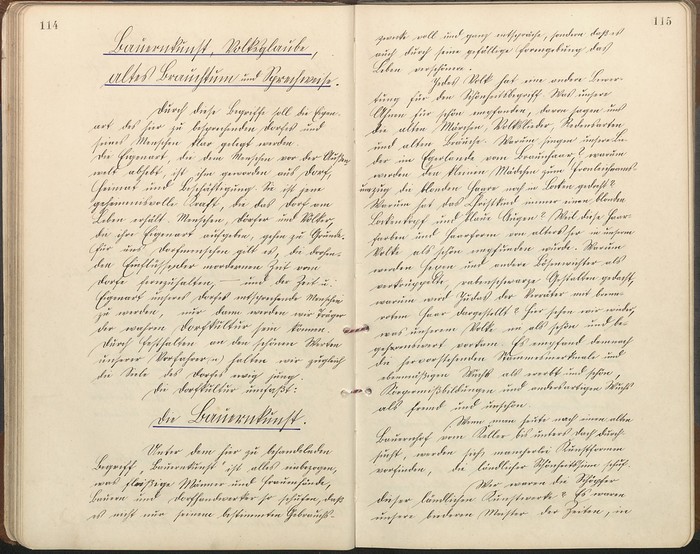 114
Bauernkunst, Volksglaube,
altes Brauchtum und Sprechweise.
Durch diese Begriffe soll die Eigen-
art des hier zu besprechenden Dorfes und
seines Menschen klar gelegt werden.
Die Eigenart, die den Menschen von der Außen-
welt abhebt, ist ihm geworden aus Dorf,
Heimat und Beschäftigung. Sie ist jene
geheimnisvolle Kraft, die das Dorf am
Leben erhält. Menschen, Dörfer und Völker,
die ihre Eigenart aufgeben, gehen zu Grunde.
Für uns Dorfmenschen gilt es, die drohen-
den Einflüsse der modernen Zeit vom
Dorfe fernzuhalten, — und der Zeit u.
Eigenart unseres Dorfes entsprechende Menschen
zu werden, nur dann werden wir Träger
der wahren Dorfkultur sein können.
Durch Festhalten an den schönen Werten
unserer Vorfahren halten wir zugleich
die Seele des Dorfes ewig jung.
Die Dorfkultur umfaßt:
Die Bauernkunst.
Unter dem hier zu behandelnden
Begriff, Bauernkunst ist alles einbezogen,
was fleißige Männer und Frauenhände,
Bauern und Dorfhandwerker so schufen, daß
es nicht nur seinem bestimmten Gebrauchs-
115
zwecke voll und ganz entspräche, sondern daß es
auch durch seine gefällige Formgebung das
Leben verschönere.
Jedes Volk hat eine andere Bewer-
tung für den Schönheitsbegriff. Was unsere
Ahnen für schön empfanden, davon sagen uns
die alten Märchen, Volkslieder, Redensarten
und alten Bräuche. Warum singen unsere Lie-
der im Egerlande vom Braunhaar? warum
werden den kleinen Mädchen zum Fronleichnams-
umzug die blonden Haare noch in Locken gedreht?
Warum hat das Christkind immer einen blonden
Lockenkopf und blaue Augen? Weil diese Haar-
farben und Haarform von altersher in unserm
Volke als schön empfunden wurde. Warum
werden Hexen und andere Bösewichter als
verkrüppelte, rabenschwarze Gestalten gedacht,
warum wird Judas der Verräter mit brann-
roten Haar dargestellt? Hier sehen wir wieder,
was unserem Volke nie als schön und be-
gehrenswert vorkam. Es empfand demnach
die hervorstehenden Stammesmerkmale und
ebenmäßigen Wuchs als ererbt und schön,
Körpermißbildungen und andersartigen Wuchs
als fremd und unschön.
Wenn man heute noch einen alten
Bauernhof vom Keller bis unters Dach durch-
sucht, werden sich mancherlei Kunstformen
vorfinden, die ländlicher Schönheitssinn schuf.
Wer waren die Schöpfer
dieser ländlichen Kunstwerke? Es waren
unsere biederen Meister der Zeiten, in